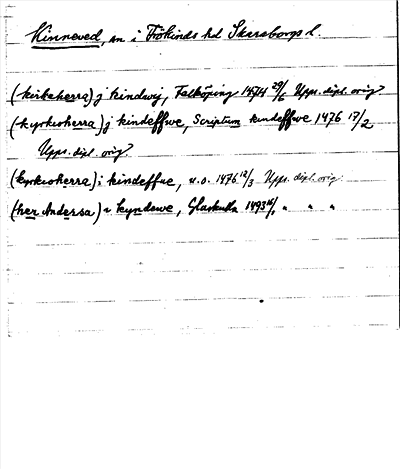 Kinneved, sn i Frökinds hd Skaraborgs l.
(-kirkaherra) j kindawij, Falköping 1474 29/6 Upps. dipl. orig.
(-kyrkioherra) j kindeffwe, Scriptum kindeffwe 1476 17/2
Upps. dipl. orig.
(kyrkioherra) i kindeffue, u.o. 1476 12/3 Upps. dipl. orig.
(her Andersa) i kyndewe, 1493 " " "